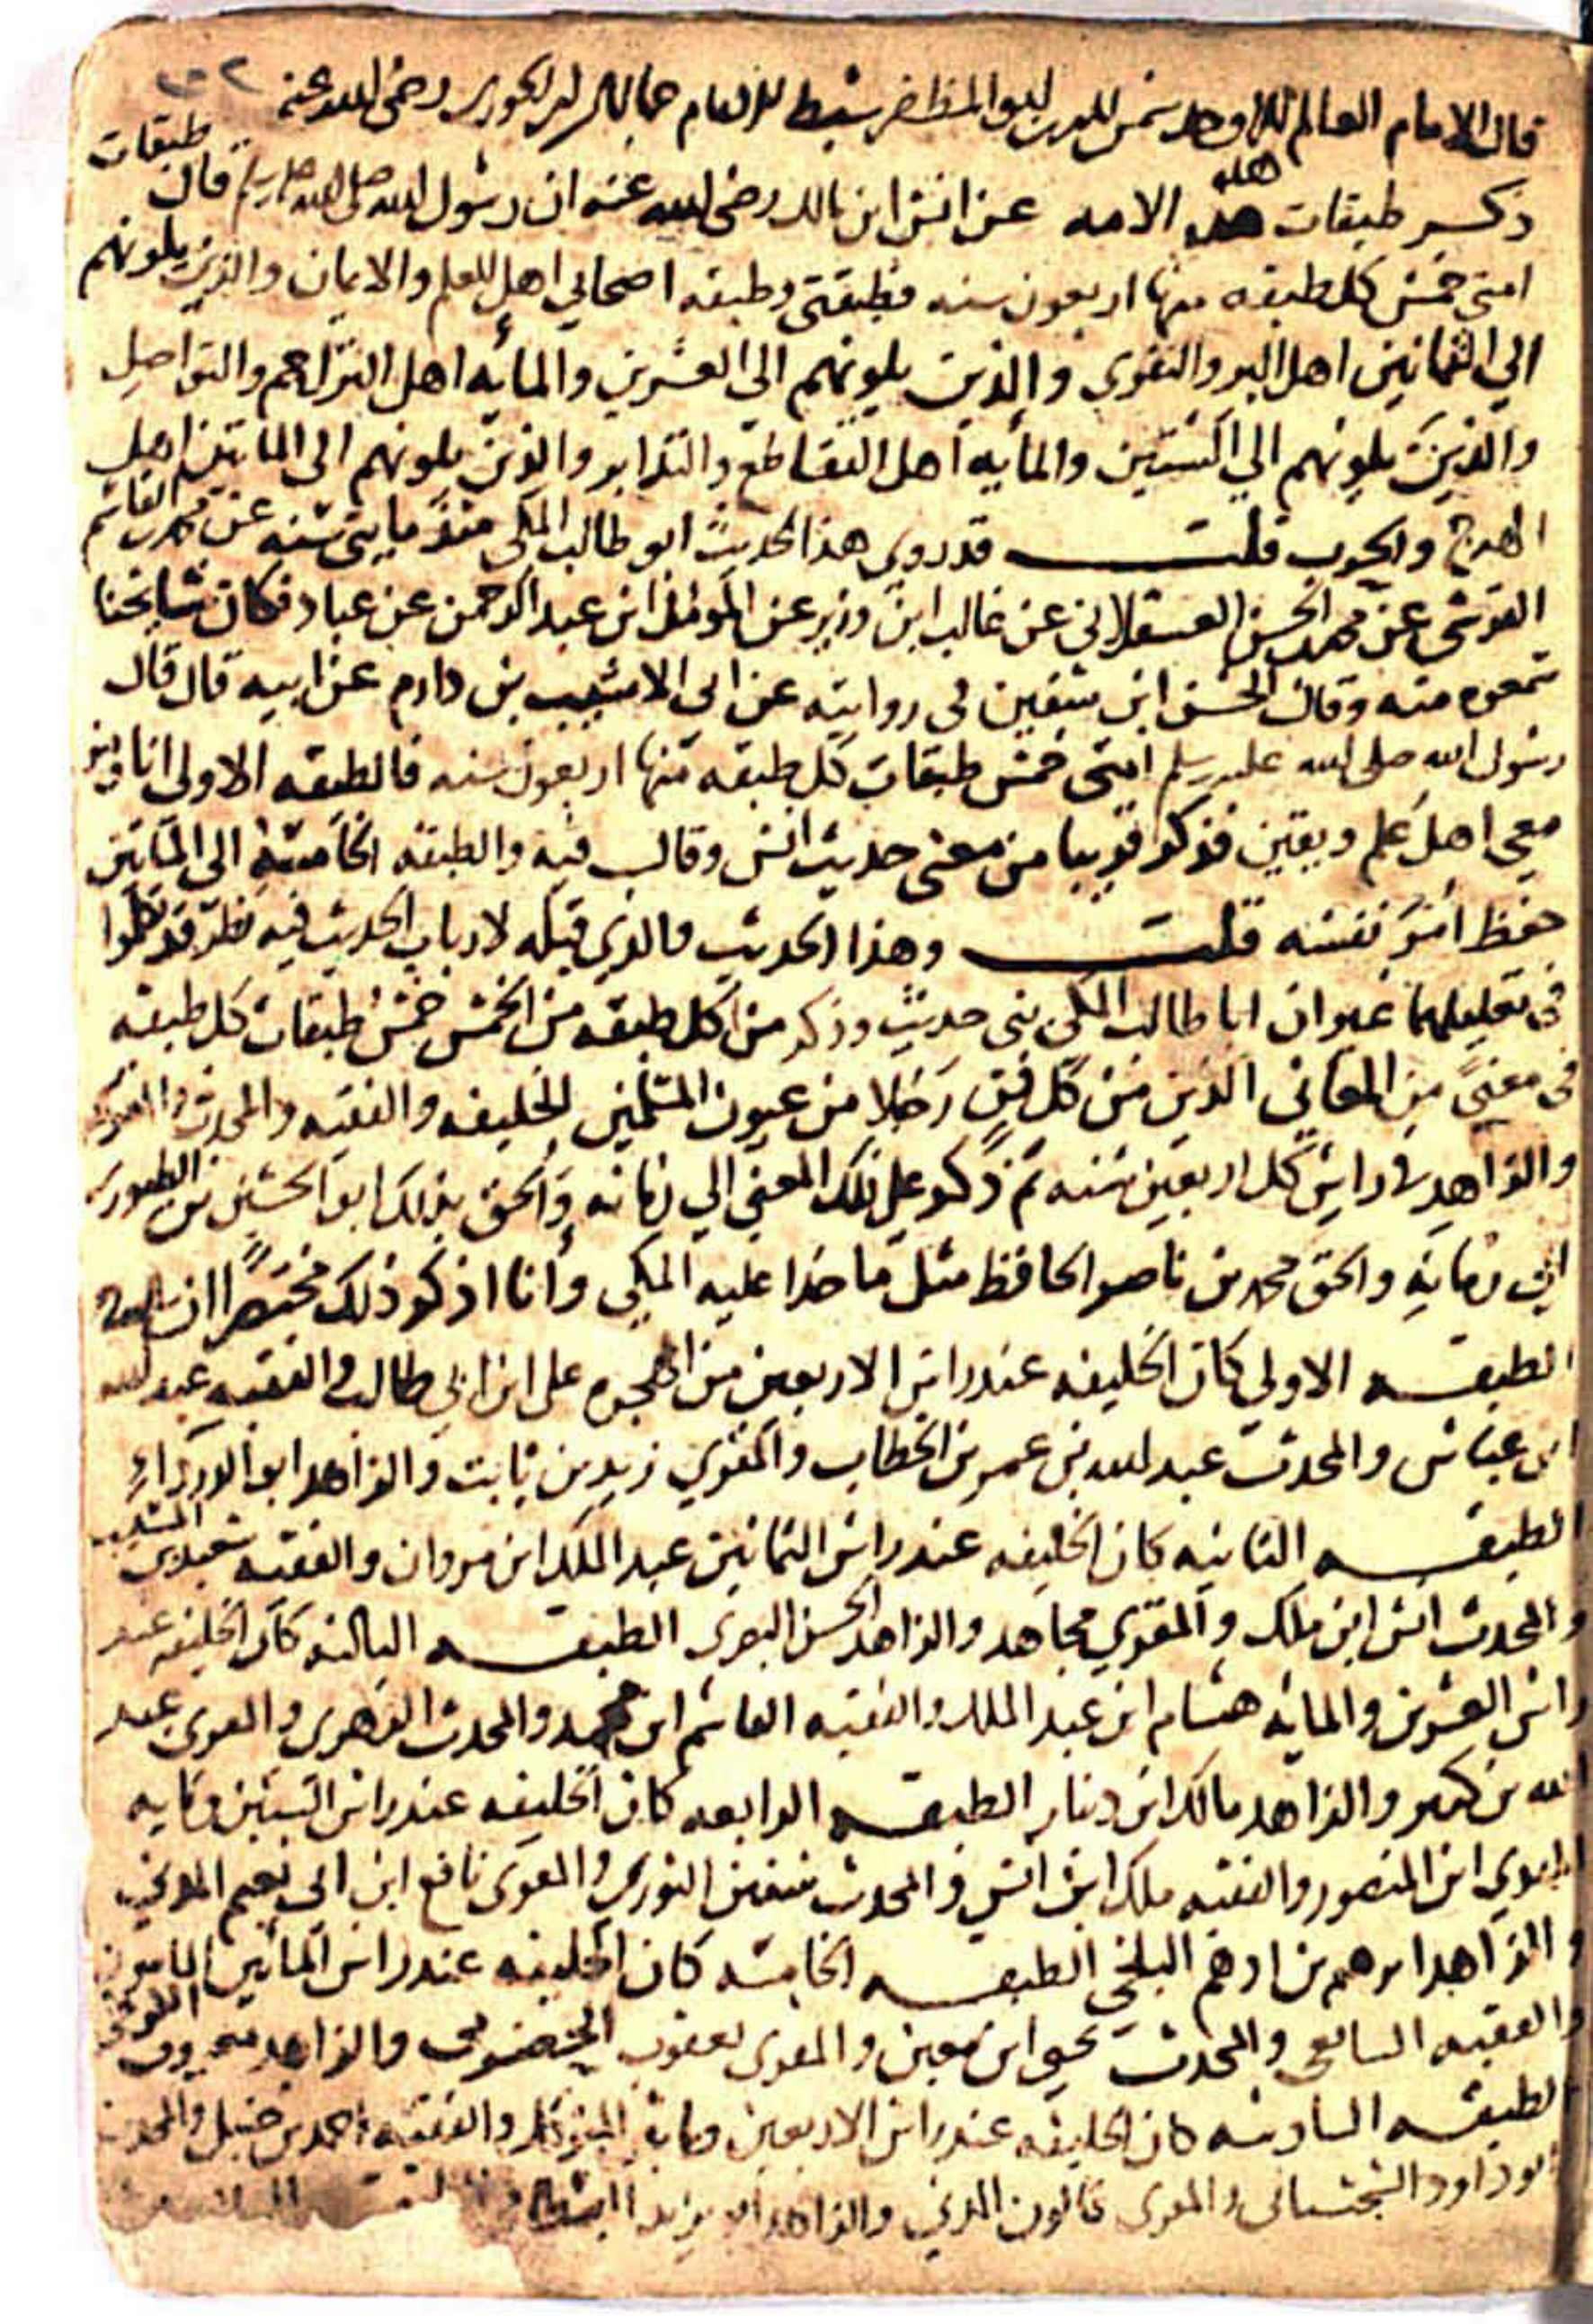 قال الامام العالم الاوحد شمس الدين ابو المظفر سبط الامام جمال الدين ابن الجوزي رضي الله عنه
ذكر طبقات هذه الامه عن انس ابن مالك رضي الله عنه ان رسول الله صلى الله عليه وسلم قال طبقات
امتي خمس كل طبقه منها اربعون سنه فطبقتي وطبقه اصحابي اهل العلم والايمان والذين يلونهم
الي الثمانين اهل البر والتقوي والذين يلونهم الي العشرين والمأيه اهل التراحم والتواصل
والذين يلونهم الي الستين والمأيه اهل التقاطع والتدابر والذين يلونهم الى الماتين اهل
الهرج والحروب قلت قدروي هذا الحديث ابو طالب المكي منذ مايتي سنه عن محمد بن القاسم
القرشي عن محمد بن الحسن العسقلاني عن غالب ابن وزير عن المومل ابن عبد الرحمن عن عباد فكان شايخنا
سمعوه منه وقال الحسن ابن سفين في روايته عن ابي الاشهب بن دارم عن ابيه قال قال
رسول الله صلى الله عليه وسلم امتي خمس طبقات كل طبقه منها اربعون سنه فالطبقه الاولى انا ومن
معي اهل علم ويقين فذكر قريبا من معنى حديث انس وقال فيه والطبقه الخامسه الى الماتين
حفظ امرؤ نفسه قلت وهذا الحديث والذي قبله لارباب الحديث فيه نظر قد تكلموا
في تعليلهما غير ان ابا طالب المكي بنى حديث وذكر من كل طبقه من الخمس خمس طبقات كل طبقه
في معنى من المعاني الذين من كل فن رجلا من عيون المسلمين الخليفه والفقيه والمحدث والمقري
والزاهد في راس كل اربعين سنه ثم ذكر علي ذلك المعني الي زمانه والحق بذلك ابو الحسين بن الطيوري
الي زمانه والحق محمد بن ناصر الحافظ مثل ما حذا عليه المكي وأنا اذكر ذلك مختصرا ان شا الله
الطبقه الاولي كان الخليفه عند راس الاربعين من الهجره علي ابن ابي طالب والفقيه عبد الله
ابن عباس والمحدث عبد الله بن عمر بن الخطاب والمقري زيد بن ثابت والزاهد ابو الدرداء
الطبقه الثانيه كان الخليفه عند راس الثمانين عبد الملك ابن مروان والفقيه سعيد بن المسيب
والمحدث انس ابن ملك والمقري مجاهد والزاهد الحسن البصري الطبقه الثالثه كان الخليفه عند
راس العشرين والمايه هشام ابن عبد الملك والفقيه القاسم ابن محمد والمحدث الزهري والمقري عبد
الله بن كثير والزاهد مالك ابن دينار الطبقه الرابعه كان الخليفه عند راس الستين ومايه
المهدي ابن المنصور والفقيه ملك ابن انس والمحدث سفين الثوري والمقري نافع ابن ابي نعيم المدني
والزاهد ابرهيم بن ادهم البلخي الطبقه الخامسه كان الخليفه عند راس المأتين المامون
والفقيه الشافعي والمحدث يحيى ابن معين والمقري يعقوب الحضرمي والزاهد معروف الكرخي
الطبقه السادسه كان الخليفه عند راس الاربعين ومايتي المتوكل والفقيه احمد بن حنبل والمحدث
ابو داود السجستاني والمقري قالون المدني والزاهد ابو يزيد